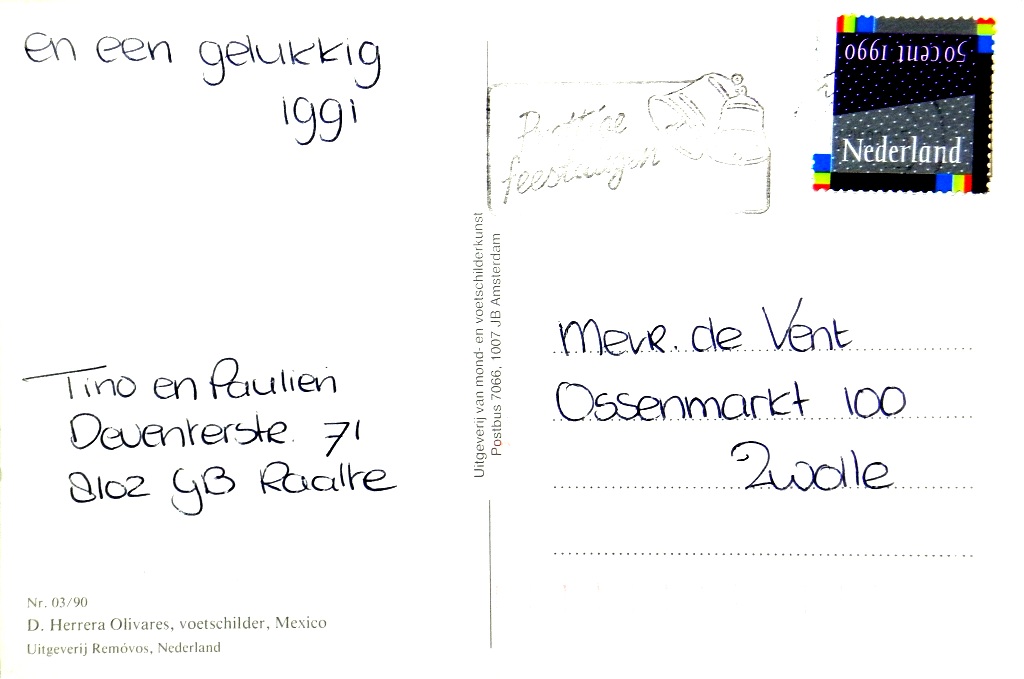 en een gelukkig
1991
Tino en Paulien
Deventerstr. 71
8102 GB Raalte
Nr. 03/90
D. Herrera Olivares, voetschilder, Mexico
Uitgeverij Remóvos, Nederland
Uitgeverij van mond- en voetschilderkunst
Postbus 7066, 1007 JB Amsterdam
Prettige
feestdagen
50 cent 1990
Nederland
Mevr. de Vent
Ossenmarkt 100
Zwolle